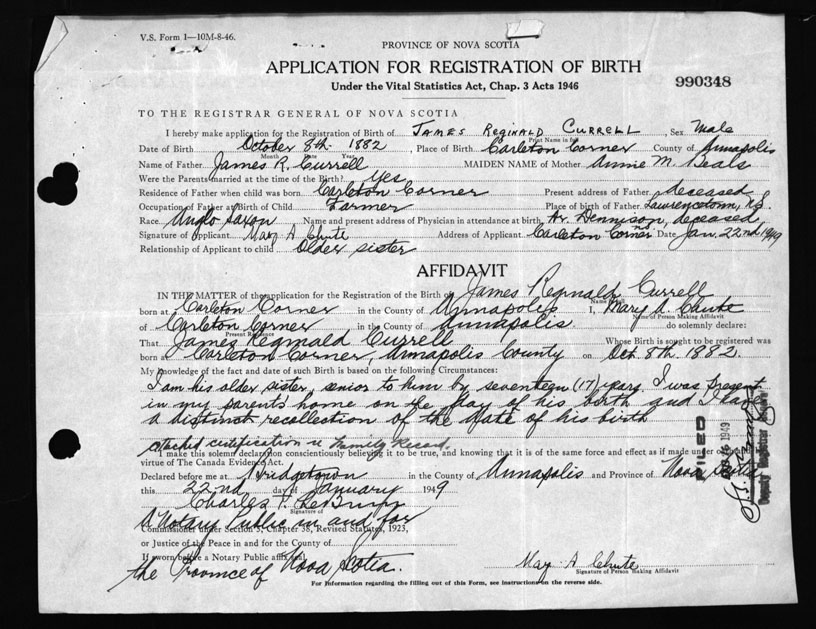 V.S. Form 1—10M-8-46.
PROVINCE OF NOVA SCOTIA
APPLICATION FOR REGISTRATION OF BIRTH
990348
Under the Vital Statistics Act, Chap. 3 Acts 1946
TO THE REGISTRAR GENERAL OF NOVA SCOTIA
I hereby make application for the Registration of Birth of JAMES REGINALD CURRELL, Sex Male
Print Name in full
Date of Birth October 8th 1882, Place of Birth Carleton Corner County of Annapolis
Month Date Year
Name of Father James R. Currell MAIDEN NAME of Mother Annie M. Beals
Were the Parents married at the time of the Birth? Yes
Residence of Father when child was born Carleton Corner Present address of Father deceased
Occupation of Father at Birth of Child Farmer Place of birth of Father Lawrencetown, N.S.
Race Anglo Saxon Name and present address of Physician in attendance at birth Dr. Dennison, deceased
Signature of Applicant Mary A Chute Address of Applicant Carleton Corner N.S. Date Jan. 22nd 1949
Relationship of Applicant to child Older sister
AFFIDAVIT
IN THE MATTER of the application for the Registration of the Birth of James Reginald Currell
Name in full
born at Carleton Corner in the County of Annapolis I, Mary A. Chute
Name of Person Making Affidavit
of Carleton Corner in the County of Annapolis do solemnly declare:
Present Residence
That James Reginald Currell Whose Birth is sought to be registered was
born at Carleton Corner, Annapolis County on Oct. 8th 1882.
My knowledge of the fact and date of such Birth is based on the following Circumstances:
I am his older sister, senior to him by seventeen (17) years. I was present
in my parents' home on the day of his birth and I have
a distinct recollection of the date of his birth
attached certification re Family Record.
I make this solemn declaration conscientiously believing it to be true, and knowing that it is of the same force and effect as if made under oath by
virtue of The Canada Evidence Act.
Declared before me at Bridgetown in the County of Annapolis and Province of Nova Scotia
this 22nd day of January 1949
Charles T. LeBrun
Signature of
A Notary Public in and for
Commissioner under Section 3, Chapter 38, Revised Statutes, 1923,
or Justice of the Peace in and for the County of
If sworn before a Notary Public affix seal.
the Province of Nova Scotia.
Mary A Chute
Signature of Person Making Affidavit
For Information regarding the filling out of this Form, see instructions on the reverse side.
FILED
1949
Deputy Registrar General